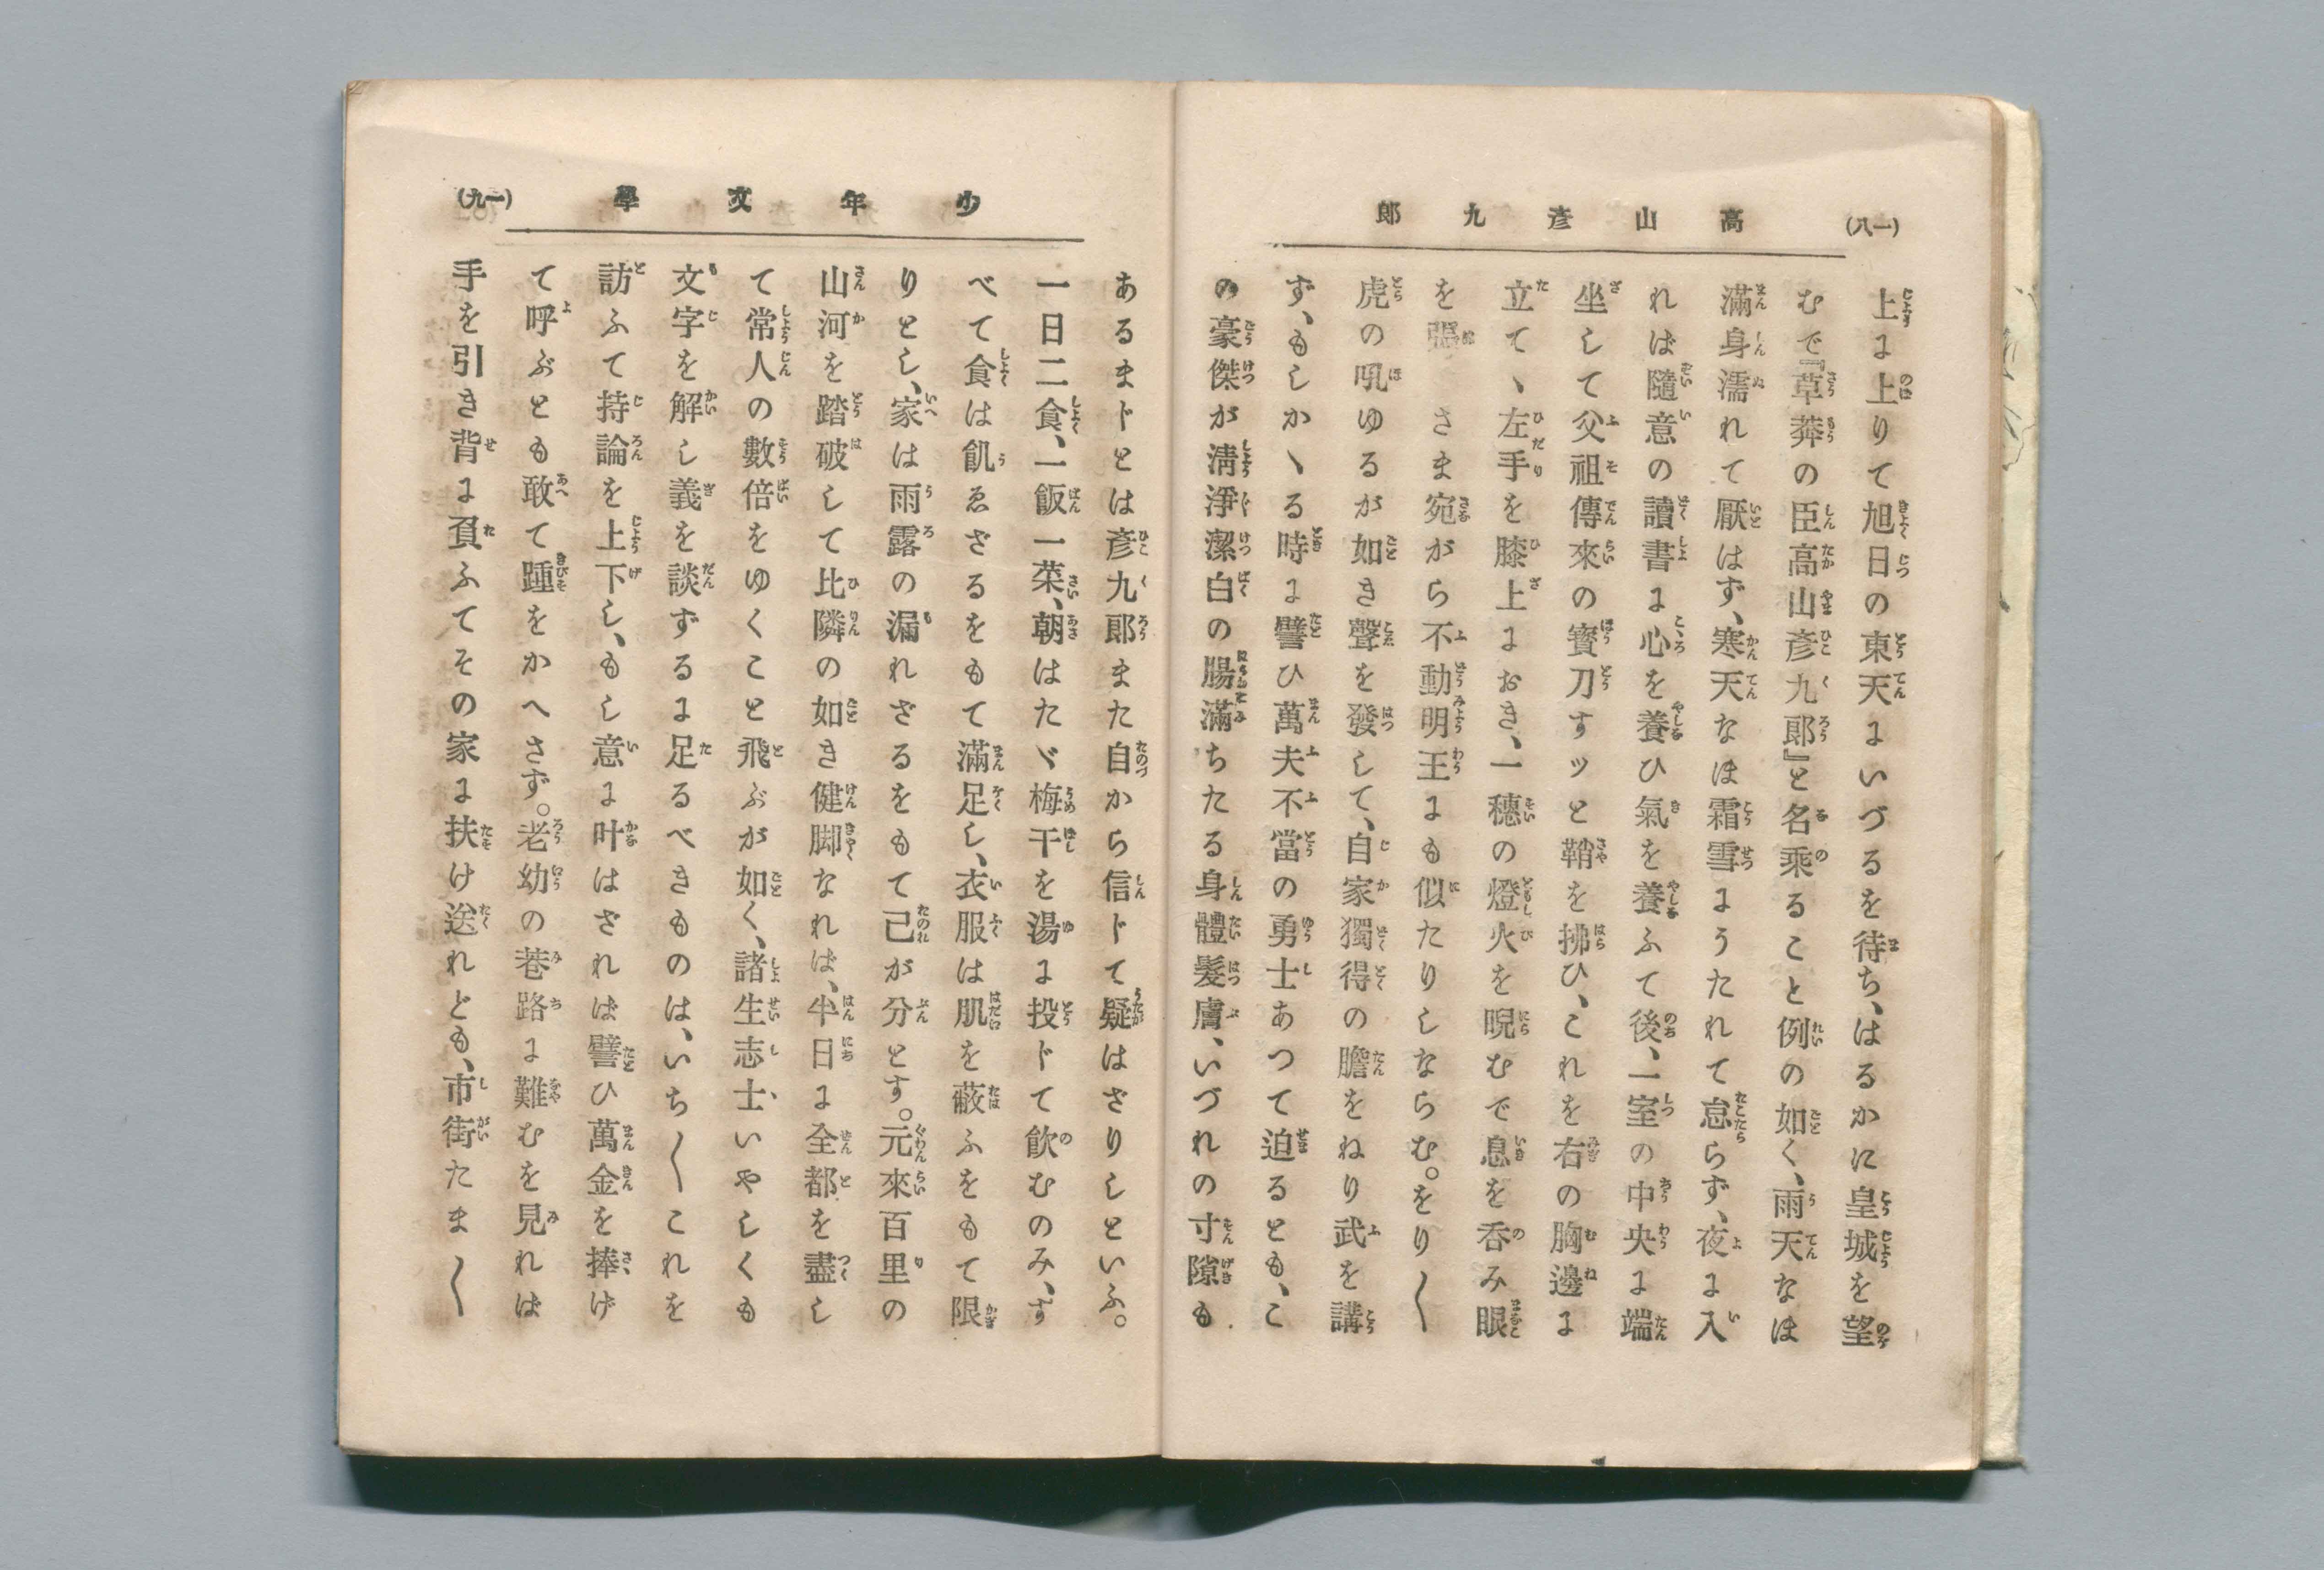 (一八)
高山彦九郎
上に上りて旭日の東天にいづるを待ち、はるかに皇城を望
むで『草莽の臣高山彦九郎』と名乘ること例の如く、雨天なほ
滿身濡れて厭はず、寒天なほ霜雪にうたれて怠らず、夜に入
れば隨意の讀書に心を養ひ氣を養ふて後、一室の中央に端
坐して父祖傳來の寳刀すッと鞘を拂ひ、これを右の胸邊に
立て、左手を膝上におき、一穗の燈火を睨むで息を呑み眼
を張 さま宛がら不動明王にも似たりしならむ。をり〱
虎の吼ゆるが如き聲を發して、自家獨得の膽をねり武を講
ず、もしかゝる時に譬ひ萬夫不當の勇士あつて迫るとも、こ
の豪傑が淸淨潔白の膓滿ちたる身體髮膚、いづれの寸隙も
少年文學
(一九)
あるまじとは彦九郎また自から信じて疑はざりしといふ。
一日二食、一飯一菜、朝はたゞ梅干を湯に投じて飮むのみ、す
べて食は飢ゑざるをもて滿足し、衣服は肌を蔽ふをもて限
りとし、家は雨露の漏れざるをもて己が分とす。元來百里の
山河を踏破して比隣の如き健脚なれば、半日に全都を盡し
て常人の數倍をゆくこと飛ぶが如く、諸生志士いやしくも
文字を解し義を談ずるに足るべきものは、いち〱これを
訪ふて持論を上下し、もし意に叶はざれば譬ひ萬金を捧げ
て呼ぶとも敢て踵をかへさず。老幼の巷路に難むを見れば
手を引き背に負ふてその家に扶け送れども、市街たま〱